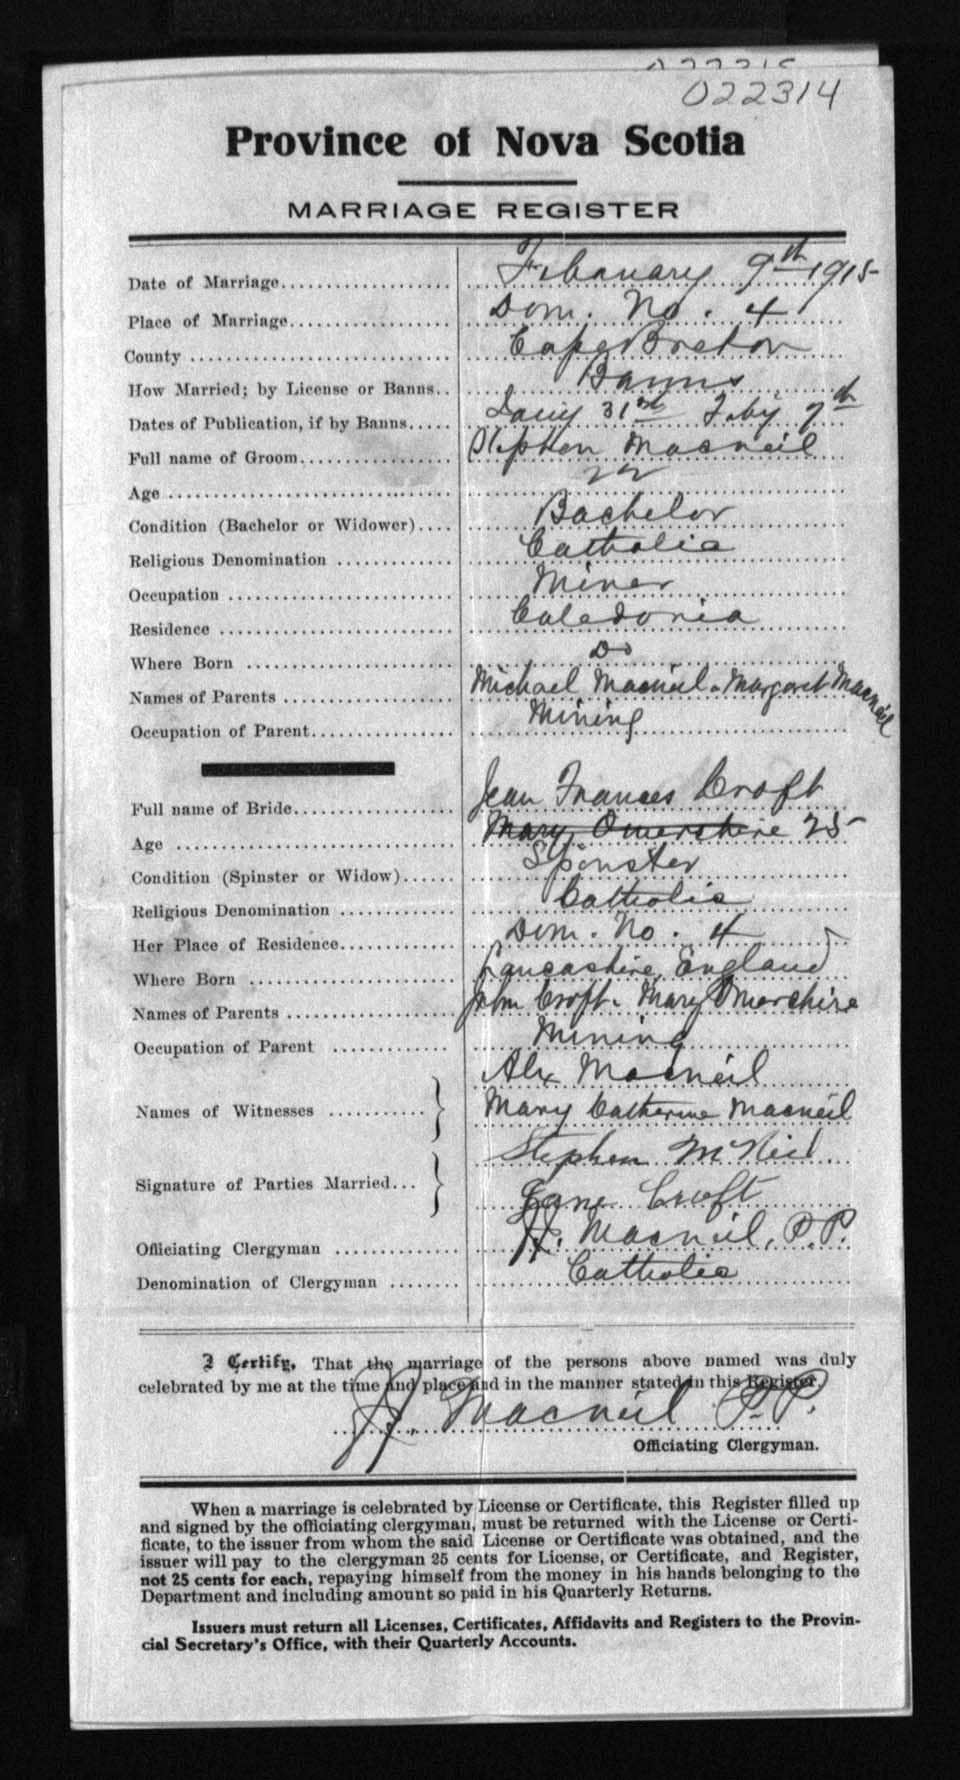 022314
Province of Nova Scotia
MARRIAGE REGISTER
Date of Marriage.................. Febauary 9th 1915
Place of Marriage.................. Dom. No. 4
County .................. Cape Breton
How Married; by License or Banns.. Banns
Dates of Publication, if by Banns..... Jany 31st Feby 7th
Full name of Groom.................. Stephen Macneil
Age .................. 22
Condition (Bachelor or Widower).... Bachelor
Religious Denomination ............. Catholic
Occupation .................. Miner
Residence .................. Caledonia
Where Born .................. Do
Names of Parents .................. Michael Macneil - Margaret Macneil
Occupation of Parent.................. Mining
Full name of Bride.................. Jean Frances Croft
Age .................. Mary Omershire 25
Condition (Spinster or Widow)...... Spinster
Religious Denomination ............. Catholic
Her Place of Residence............. Dom. No. 4
Where Born .................. Lancashire, England
Names of Parents .................. John Croft - Mary Omershire
Occupation of Parent ............. Mining
Alex Macneil
Names of Witnesses ........... Mary Catherine Macneil
Stephen McNeil
Signature of Parties Married... Jane Croft
Officiating Clergyman ............. Macneil, P.P.
Denomination of Clergyman ........ Catholic
I Certify, That the marriage of the persons above named was duly
celebrated by me at the time and place and in the manner stated in this Register.
Macneil P.P.
Officiating Clergyman.
When a marriage is celebrated by License or Certificate, this Register filled up
and signed by the officiating clergyman, must be returned with the License or Certi-
ficate, to the issuer from whom the said License or Certificate was obtained, and the
issuer will pay to the clergyman 25 cents for License, or Certificate, and Register,
not 25 cents for each, repaying himself from the money in his hands belonging to the
Department and including amount so paid in his Quarterly Returns.
Issuers must return all Licenses, Certificates, Affidavits and Registers to the Provin-
cial Secretary's Office, with their Quarterly Accounts.